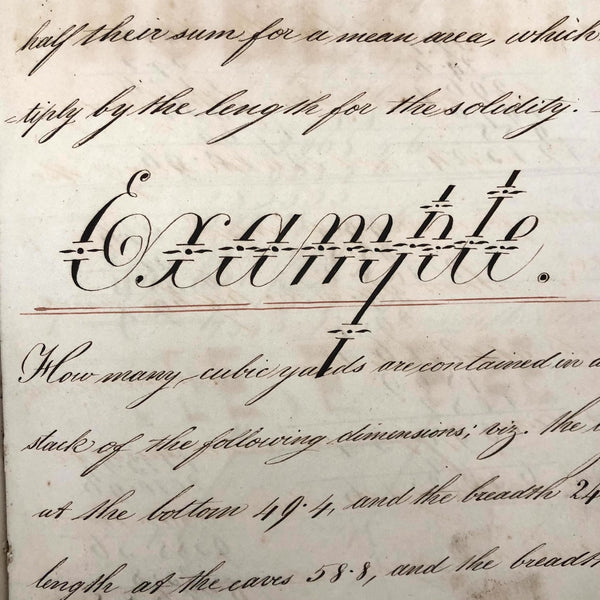 half their sum for a mean area, which
=tiply by the length for the solidity. -
Example.
How many cubic yards are contained in a
stack of the following dimensions; viz. the
at the bottom 49.4, and the breadth 24
length at the eaves 58.8, and the breadth